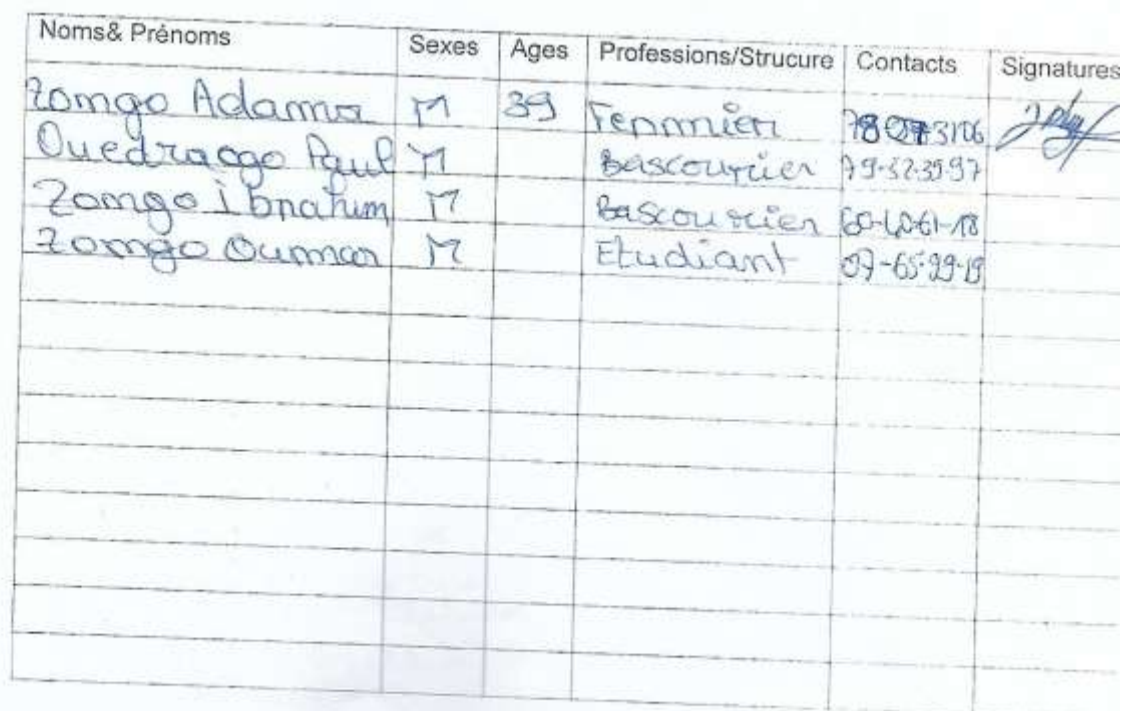 Noms& Prénoms Sexes Ages Professions/Strucure Contacts Signatures
Zomgo Adama M 39 Fermmier
Ouedraogo Paul M Bascourier 79-32-39-97
Zomgo ibrahim M Bascourier 60-40-61-18
Zomgo Oumar M Etudiant 07-65-99-19